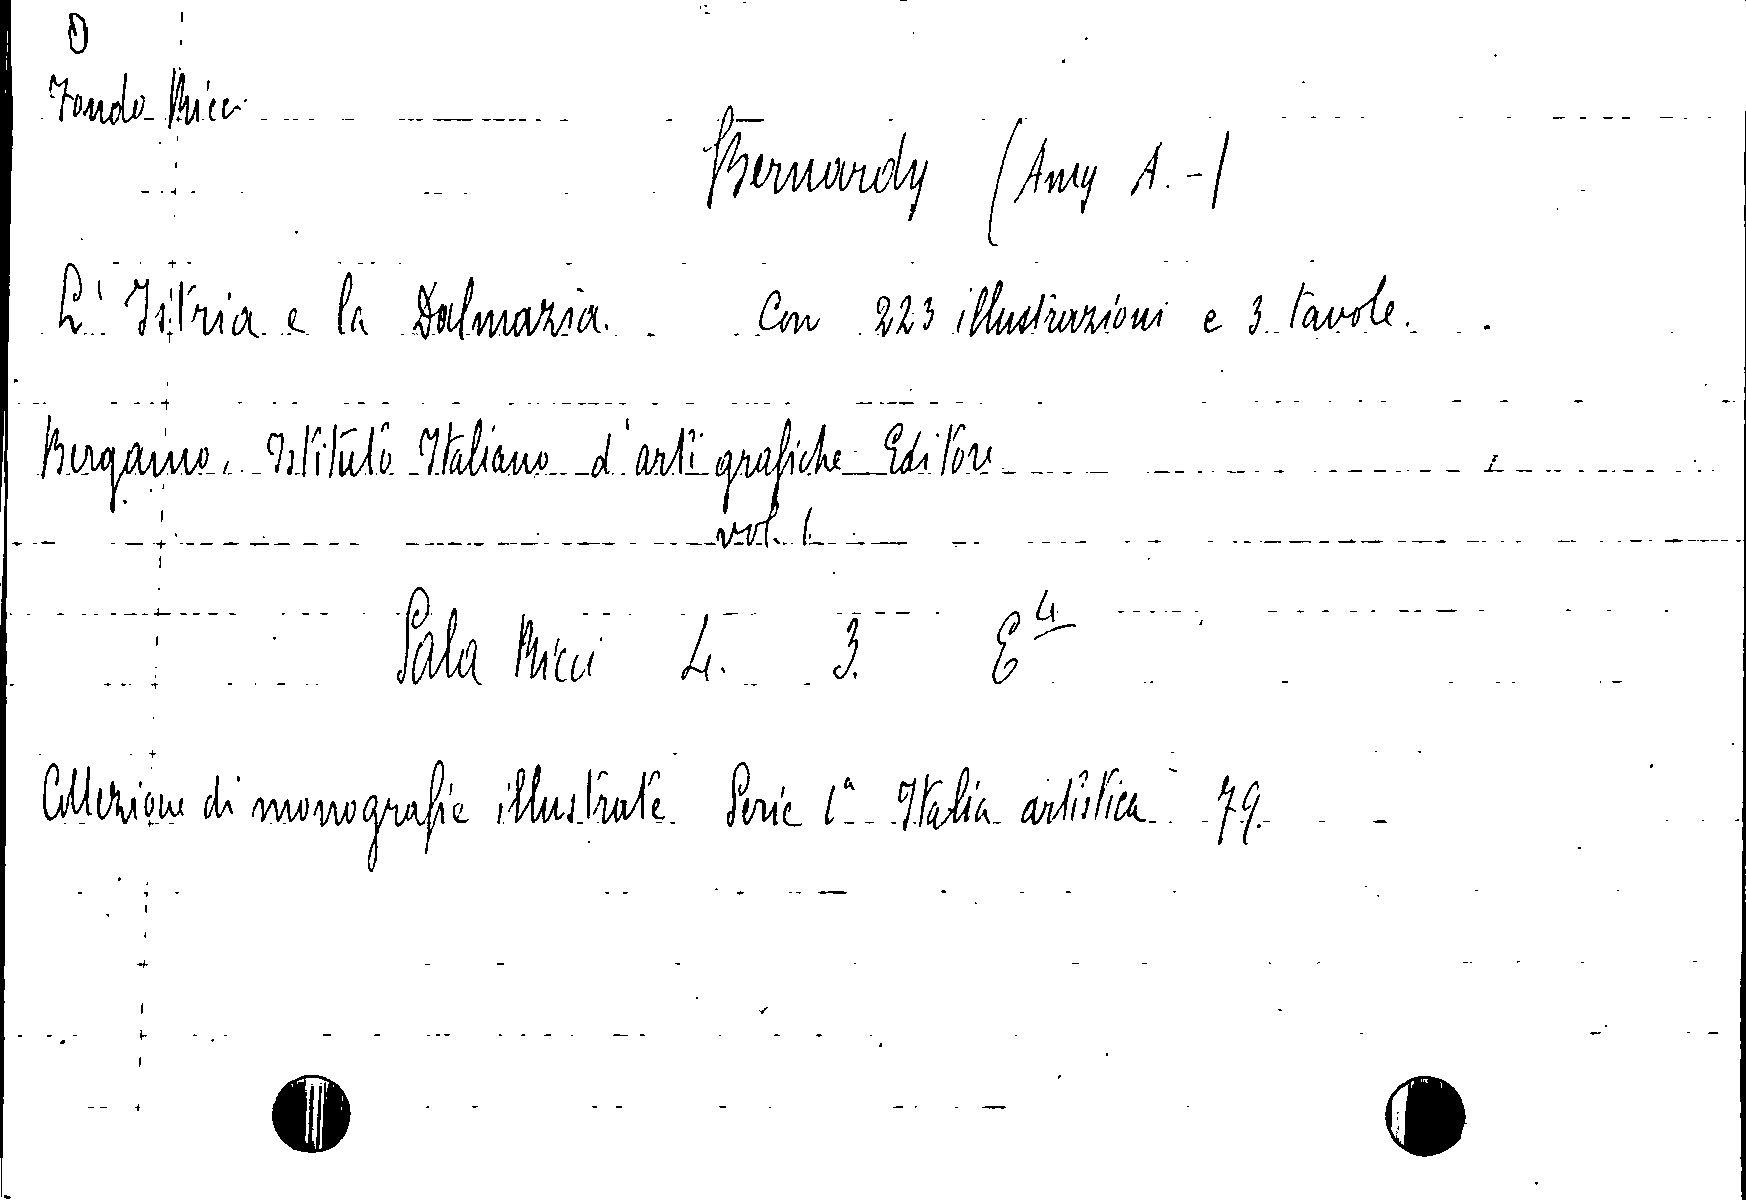 Fondo Ricci
Bernardy (Amy A.-)
L'Istria e la Dalmazia. Con 223 illustrazioni e 3 tavole.
Bergamo, Istituto Italiano d'arti grafiche Editore
vol. 1
Sala Ricci 4. 3. E⁴
Collezione di monografie illustrate Serie 1ª Italia artistica 79.